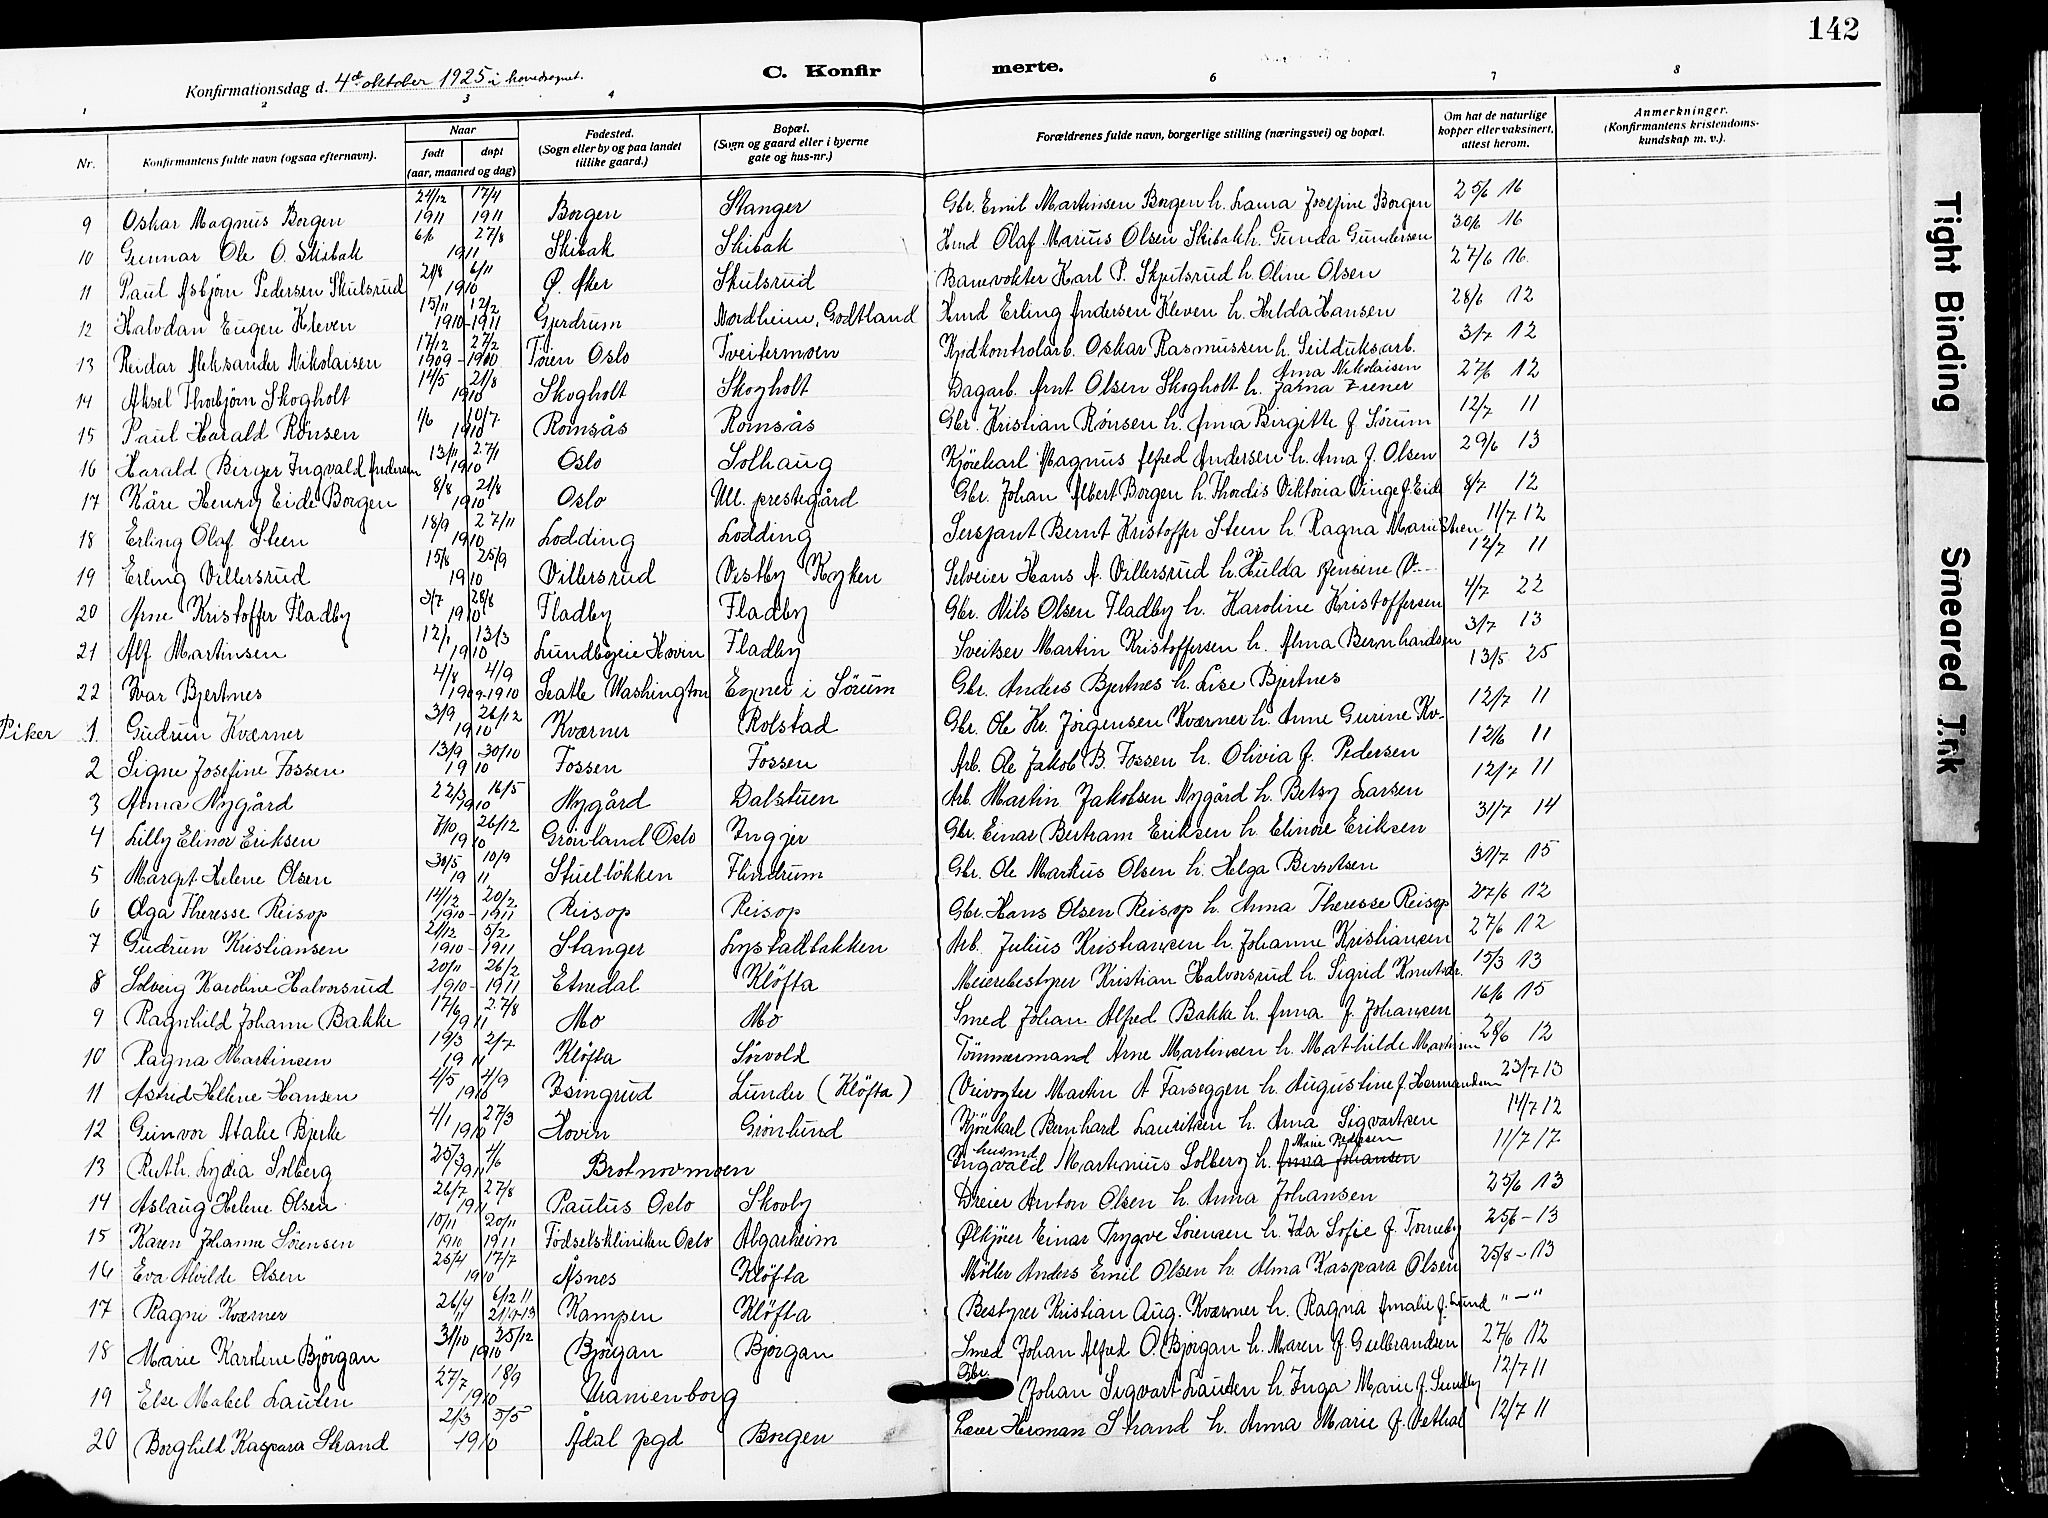 142
Konfirmationsdag d. 4de oktober 1925 i hovedsognet. C. Konfir merte.
1 2 3 4 6 7 8
Nr. Konfirmantens fulde navn (ogsaa efternavn). Naar født døpt (aar, maaned og dag) Fødested. (Sogn eller by og paa landet tillike gaard.) Bopæl. (Sogn og gaard eller i byerne gate og hus-nr.) Forældrenes fulde navn, borgerlige stilling (næringsvei) og bopæl. Om hat de naturlige kopper eller vaksinert, attest herom. Anmerkninger. (Konfirmantens kristendoms-kundskap m. v.).
9 Oskar Magnus Borgen 24/12 1911 17/4 1911 Borgen Stanger Gbr. Emil Martinsen Borgen h. Laura Josefine Borgen 25/6 16
10 Gunnar Ole O. Skibak 6/6 27/8 1911 Skibak Skibak Hmd Olaf Marius Olsen Skibak h. Gunda Gundersen 30/6 16
11 Paul Asbjørn Pedersen Skulsrud 21/8 6/11 1910 Ø. Aker Skulsrud Banevokter Karl P. Skjulsrud h. Oline Olsen 27/6 16.
12 Halvdan Eugen Kleven 15/11 12/2 1910-1911 Gjerdrum Nordheim, Godtland Hmd Erling Andersen Kleven h. Hilda Hansen 28/6 12
13 Reidar Aleksander Nikolaisen 17/12 27/2 1909-1910 Tøien Oslo Tveitermoen Kjødkontrolarb. Oskar Rasmussen h. Seilduksarb. Anna Nikolaisen 3/7 12
14 Aksel Thorbjørn Skogholt 14/5 21/8 1910 Skogholt Skogholt Dagarb. Arnt Olsen Skogholt h. Jarna Ziener 27/6 12
15 Paul Harald Rønsen 1/6 10/7 1910 Romsås Romsås Gbr. Kristian Rønsen h. Anna Birgitte f Sørum 12/7 11
16 Harald Birger Ingvald Andersen 13/11 27/1 1910 Oslo Solhaug Kjørekarl Magnus Alfred Andersen h. Anna f. Olsen 29/6 13
17 Kåre Henry Eide Borgen 8/8 21/8 1910 Oslo Ull. prestegård Gbr. Johan Albert Borgen h. Thordis Viktoria Vinge f. Eide 8/7 12
18 Erling Olaf Steen 18/9 27/11 1910 Lodding Lodding Sersjant Bernt Kristoffer Steen h Ragna Marie Steen 11/7 12
19 Erling Villersrud 15/8 25/9 1910 Villersrud Vestby Kyken Selveier Hans A. Villersrud h. Hulda Jensine V— 12/7 11
20 Arne Kristoffer Fladby 3/7 28/8 1910 Fladby Fladby Gbr. Nils Olsen Fladby h. Karoline Kristoffersen 4/7 22
21 Alf Martinsen 12/1 13/3 1910 Lundbyeie Hovin Fladby Sveitser Martin Kristoffersen h. Alma Bernhardsen 3/7 13
22 Ivar Bjertnes 4/8 4/9 1909-1910 Seatle Washington Egner i Sørum Gbr. Anders Bjertnes h. Lise Bjertnes 13/5 25
Piker 1 Gudrun Kværner 3/9 26/12 1910 Kværner Rolstad Gbr. Ole Kr. Jørgensen Kværner h. Anne Gurine Kv- 12/7 11
2 Signe Josefine Fossen 13/9 30/10 1910 Fossen Fossen Arb. Ole Jakob B. Fossen h. Olivia f. Pedersen 12/6 11
3 Anna Nygård 22/3 16/5 1910 Nygård Dalstuen Arb. Martin Jakobsen Nygård h. Betsy Larsen 12/7 11
4 Lilly Elinor Eriksen 7/10 26/12 1910 Grønland Oslo Ingjer Gbr. Einar Bertram Eriksen h. Elinore Eriksen 31/7 14
5 Margit Helene Olsen 30/5 10/9 1911 Stuelløkken Flindrum Gbr. Ole Markus Olsen h. Helga Berntsen 31/7 15
6 Olga Theresse Reisop 14/12 20/2 1910-1911 Reisop Reisop Gbr. Hans Olsen Reisop h. Anna Theresse Reisop 27/6 12
7 Gudrun Kristiansen 21/12 5/2 1910-1911 Stanger Lystadbakken Arb. Julius Kristiansen h. Johanne Kristiansen 27/6 12
8 Solveig Karoline Halvorsrud 20/11 26/2 1910-1911 Etnedal Kløfta Meieribestyrer Kristian Halvorsrud h. Sigrid Knutsdr. 15/3 13
9 Ragnhild Johanne Bakke 17/6 27/8 1911 Mo Mo Smed Johan Alfred Bakke h. Anna f. Johansen 16/6 15
10 Ragna Martinsen 19/3 2/7 1911 Kløfta Sørvold Tømmermand Arne Martinsen h. Mathilde Martinsen 28/6 12
11 Astrid Helene Hansen 4/5 4/9 1910 Isingrud Lunder (Kløfta) Veivogter Martin A Farseggen h. Augustine f. Hermansen 23/7 13
12 Gunvor Atalie Bjerke 4/1 27/3 1910 Hovin Grønlund Kjørekarl Bernhard Lauritsen h. Anna Sigvartsen 14/7 12
13 Ruth Lydia Solberg 25/3 4/6 1911 Brotnovmoen husmd Ingvald Martinius Solberg h. Anna Johansen Marie Pedersen 11/7 17
14 Aslaug Helene Olsen 26/7 27/8 1911 Paulus Oslo Skovly Dreier Anton Olsen h. Anna Johansen 25/6 13
15 Karen Johanne Sørensen 10/11 1910 20/11 1911 Fødselskliniken Oslo Algarheim Ølkjører Einar Trygve Sørensen h. Ida Sofie f. Torneby 25/6 - 13
16 Eva Alvilde Olsen 25/4 17/7 1910 Åsnes Kløfta Møller Anders Emil Olsen h. Alma Kaspara Olsen 25/8 - 13
17 Ragni Kværner 26/4 11 6/12 11 Kampen Kløfta Bestyrer Kristian Aug. Kværner h. Ragna Amalie f. Lund " — "
18 Marie Karoline Bjørgan 31/10 25/12 1910 Bjørgan Bjørgan Smed Johan Alfred O. Bjørgan h. Maren f. Gulbrandsen 27/6 12
19 Else Mabel Lauten 27/7 18/9 1910 Uranienborg Gbr. Johan Sigvart Lauten h. Inga Marie f. Sundby 12/7 11
20 Borghild Kaspara Strand 2/3 5/5 1910 Ådal pgd Borgen Lærer Herman Strand h. Anna Marie f. Vethal 12/7 11
Tight Binding
Smeared Trik